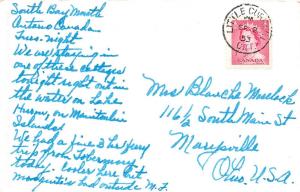 South Bay Mouth
Ontario Canada
Tues. night
We are staying in
one of these cottages
tonight right out in
the water on Lake
Huron, on Manitoulin
Island
We had a fine 3 hr ferry
trip from Tobermory
today. Cooler here but
mosquitoes bad outside M.F.
LITTLE CURRENT
53
ONT.
CANADA
Mrs Blanche
116½ South Main St
Marysville
Ohio, U.S.A.